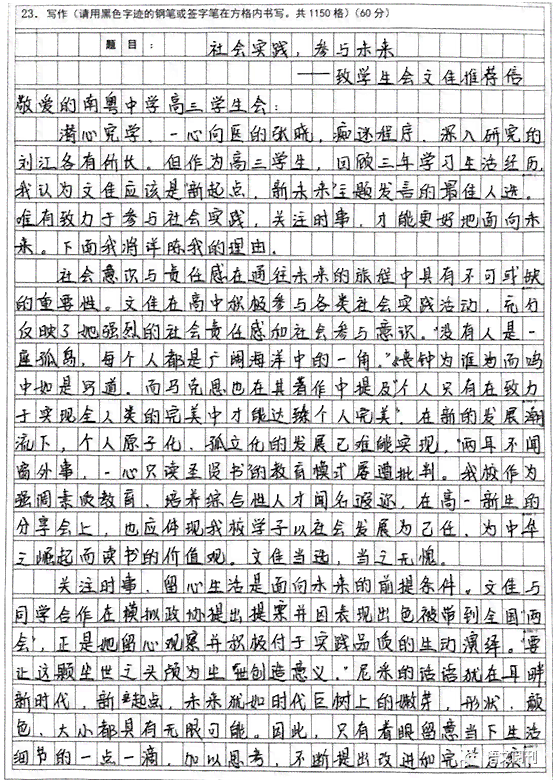 23. 写作（请用黑色字迹的钢笔或签字笔在方格内书写。共1150格）(60分)
题 目： 社会实践，参与未来
——致学生会文佳推荐信
敬爱的南粤中学高三学生会：
潜心究学、一心向医的张晓，痴迷程序、深入研究的
刘江各有所长。但作为高三学生，回顾三年学习生活经历，
我认为文佳应该是"新起点，新未来"主题发言的最佳人选。
唯有致力于参与社会实践，关注时事，才能更好地面向未
来。下面我将详陈我的理由。
社会意识与责任感在通往未来的旅程中具有不可或缺
的重要性。文佳在高中积极参与各类社会实践活动，充分
反映了她强烈的社会责任感和社会参与意识。"没有人是一
座孤岛，每个人都是广阔海洋中的一角。"《丧钟为谁而鸣》
中如是写道。而马克思也在其著作中提及"个人只有在致力
于实现全人类的完美中才能达臻个人完美"。在新的发展潮
流下，个人原子化、孤立化的发展已难能实现，"两耳不闻
窗外事，一心只读圣贤书"的教育模式屡遭批判。我校作为
强调素质教育、培养综合性人才闻名遐迩，在高一新生的
分享会上，也应体现我校学子以社会发展为己任、为中华
之崛起而读书的价值观。文佳当选，当之无愧。
关注时事、留心生活是面向未来的前提条件。文佳与
同学合作在模拟政协提出提案并因表现出色被带到全国"两
会"，正是她留心观察并积极付于实践品质的生动演绎。"要
让这颗尘世之头颅为尘世创造意义。"尼采的话语犹在耳畔
新时代，新起点，未来犹如时代巨树上的嫩芽，形状、颜
色、大小都具有无限可能。因此，只有着眼留意当下生活
细节的一点一滴，加以思考，不断提出改进和完善